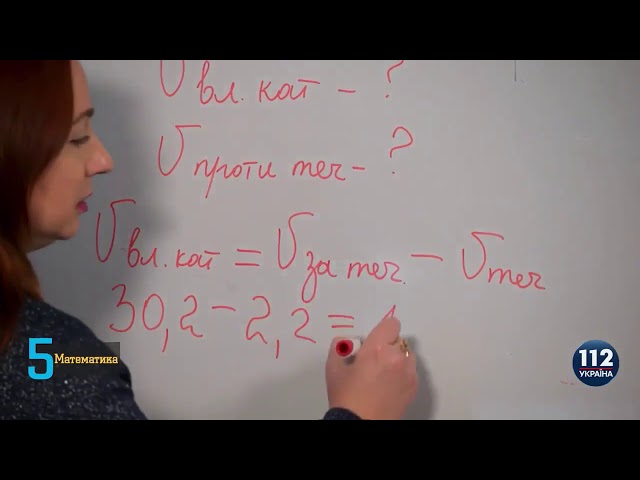 V вл. кат - ?
V проти теч - ?
V вл. кат = V за теч. - V теч
30,2 - 2,2 =
5 Математика
112
УКРАЇНА